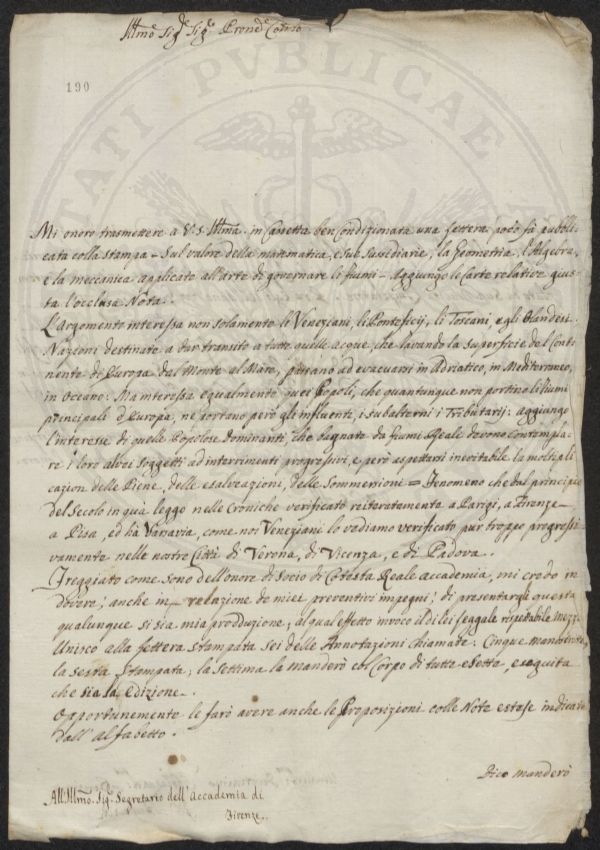 Illmo Sigr Sigr Prone Colmo
190
TATI PVBLICAE
Mi onoro trasmettere a V. S. Illma in Cassetta ben Condizionata una Lettera poco fà pubbli-
cata colla stampa = Sul valore della matematica, e sue Sussidiarie, la Geometria, l'Algebra,
e la meccanica applicate all'arte di governare li fiumi = Aggiungo le Carte relative gius-
ta l'occlusa Nota.
L'argomento interessa non solamente li Veneziani, li Pontificij, li Toscani, e gli Olandesi.
Nazioni destinate a dar transito a tutte quelle acque, che lavando la Superficie del Conti-
nente di Europa dal Monte al Mare, passano ad evacuarsi in Adriatico, in Mediterraneo,
in Oceano: Ma interessa egualmente quei Popoli, che quantunque non portino li fiumi
principali d'Europa, ne portano però gl'influenti, i subalterni i Tributarij: Aggiungo
l'interesse di quelle Popolose Dominanti, che bagnate da fiumi Reale devono Contempla-
re i loro alvei soggetti ad interrimenti progressivi, e però aspettarsi inevitabile la moltipli-
cazion delle Piene, delle esalveazioni, delle Sommersioni = Fenomeno che dal principio
del Secolo in quà leggo nelle Croniche verificato reiteratamente a Parigi, a Firenze
a Pisa, ed hà Vanavia, come noi Veneziani lo vediamo verificato pur troppo progressi-
vamente nelle nostre Città di Verona, di Vicenza, e di Padova.
Freggiato come sono dell'onore di Socio di Cotesta Reale accademia, mi credo in
dovere, anche in relazione de miei preventivi impegni, di presentargli questa
qualunque si sia mia produzione, al qual effetto invoco il di lei rispettabile mezzo.
Unisco alla Lettera stampata sei delle Annotazioni chiamate: Cinque manoscritte,
la sesta Stampata; la Settima la manderò col Corpo di tutte e sette, eseguita
che sia la edizione.
Opportunemente le farò avere anche le Proposizioni colle Note estese indicate
dall'alfabetto.
Dico manderò
All'Illmo. Sigr. Segretario dell'Accademia di
Firenze.